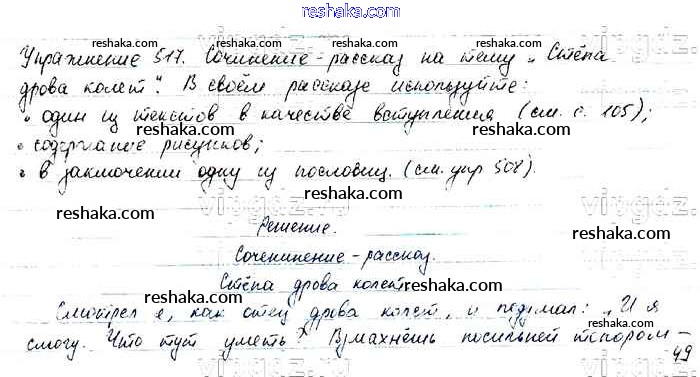 reshaka.com
reshaka.com reshaka.com
Упражнение 517. Сочинение-рассказ на тему „Стёпа
дрова колет“. В своём рассказе используйте:
• один из текстов в качестве вступления (см. с. 105);
reshaka.com
• содержание рисунков;
reshaka.com
• в заключении одну из пословиц. (см. упр 508).
reshaka.com reshaka.com
Решение.
reshaka.com
Сочененинение-рассказ.
Стёпа дрова колет
reshaka.com reshaka.com
Смотрел я, как отец дрова колет, и подумал: „И я
смогу. Что тут уметь? Взмахнёшь посильней топором –
reshaka.com reshaka.com
49